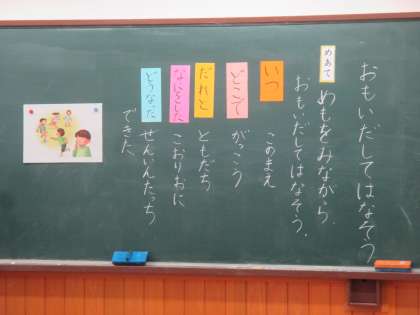 おもいだしてはなそう
めあて
めもをみながら、
おもいだしてはなそう。
いつ
このまえ
どこで
がっこう
だれと
ともだち
なにをした
こおりおに
どうなった
ぜんいんたっち
できた。